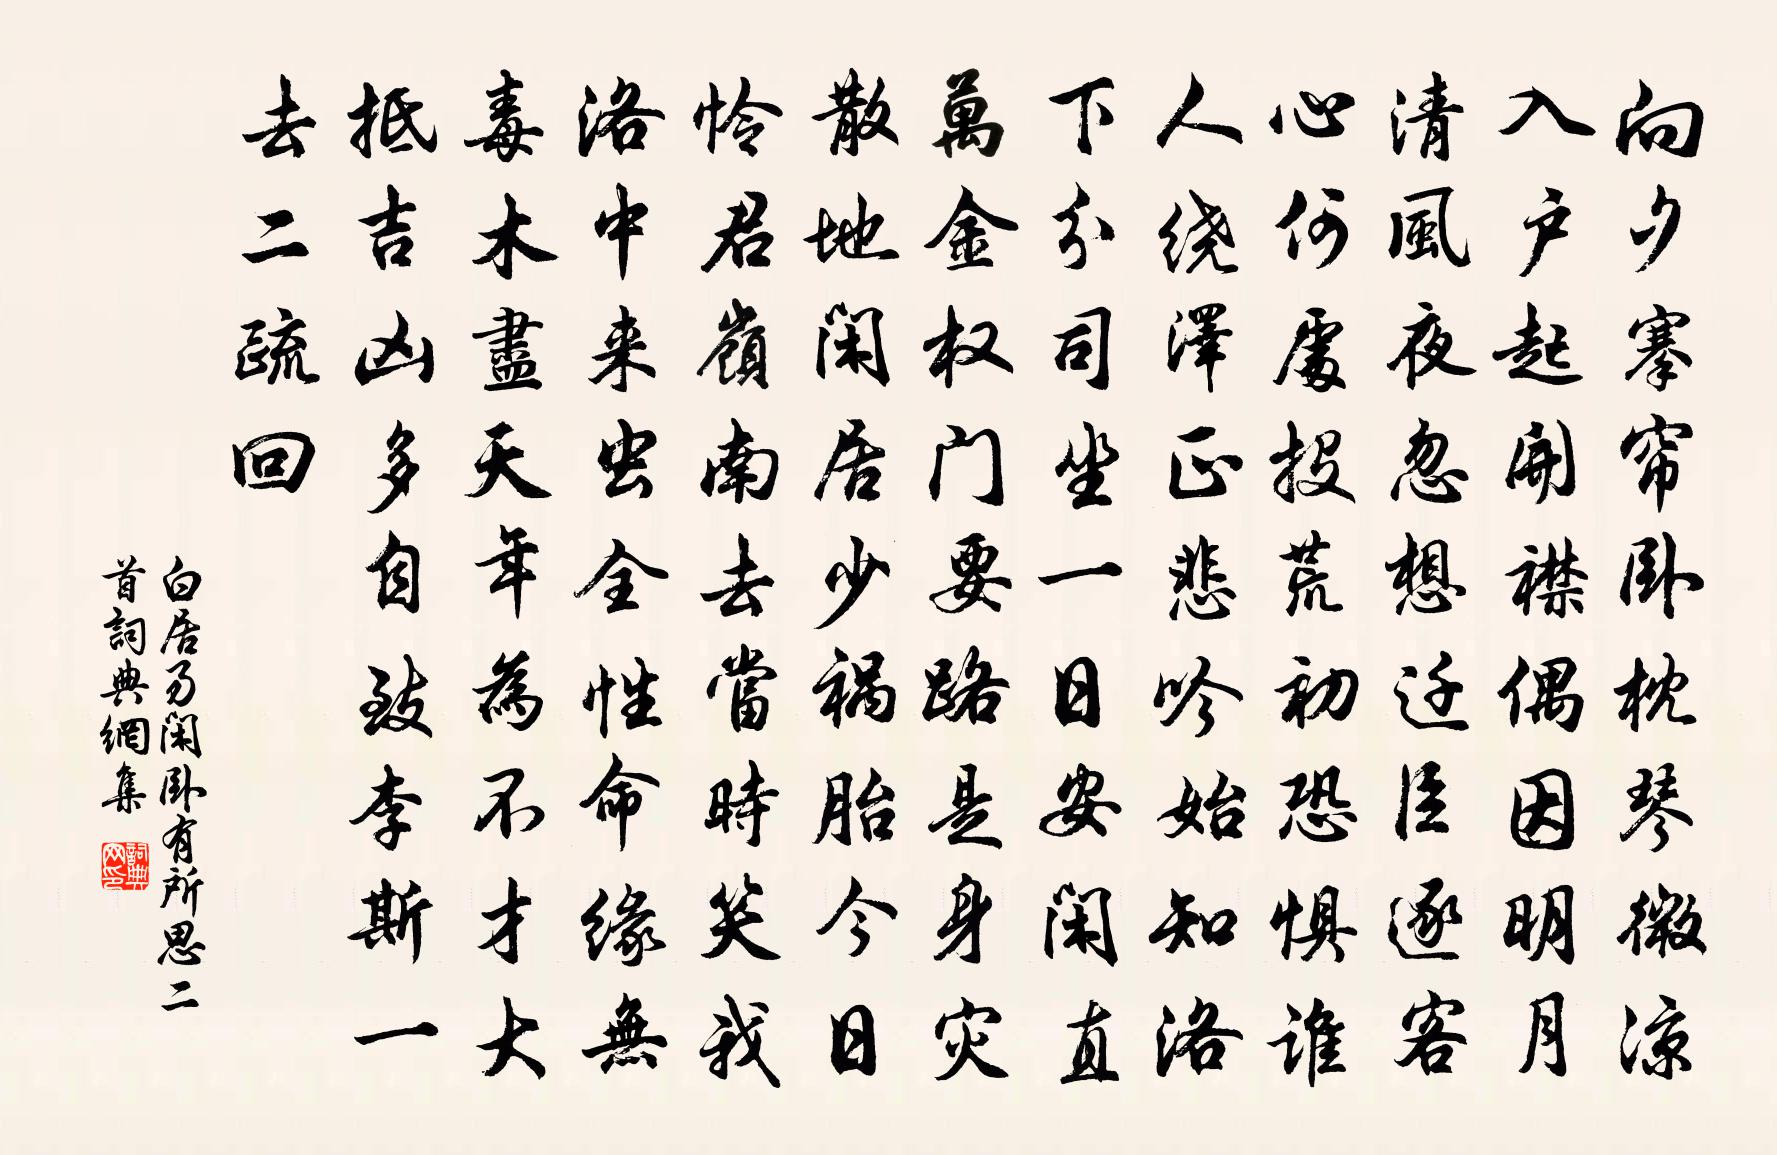 向夕搴帘卧枕琴微凉
入户起開襟偶因明月
清風夜忽想迁臣逐客
心何處投荒初恐懼谁
人绕澤正悲吟始知洛
下分司坐一日安閑直
萬金权门要路是身灾
散地閑居少祸胎今日
怜君嶺南去當時笑我
洛中来虫全性命緣無
毒木盡天年為不才大
抵吉凶多自致李斯一
去二疏回
白居易閑卧有所思二
首詞典網集
詞典网印